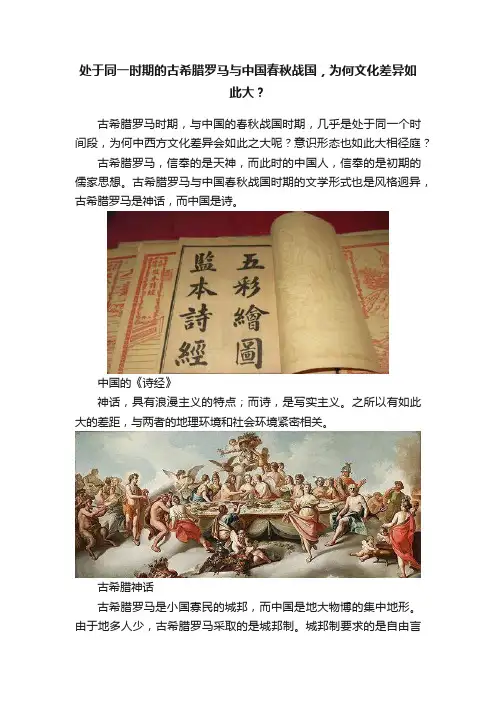 处于同一时期的古希腊罗马与中国春秋战国，为何文化差异如
此大？
古希腊罗马时期，与中国的春秋战国时期，几乎是处于同一个时
间段，为何中西方文化差异会如此之大呢？意识形态也如此大相径庭？
古希腊罗马，信奉的是天神，而此时的中国人，信奉的是初期的
儒家思想。古希腊罗马与中国春秋战国时期的文学形式也是风格迥异，
古希腊罗马是神话，而中国是诗。
五彩繪圖
監本詩經
中国的《诗经》
神话，具有浪漫主义的特点；而诗，是写实主义。之所以有如此
大的差距，与两者的地理环境和社会环境紧密相关。
古希腊神话
古希腊罗马是小国寡民的城邦，而中国是地大物博的集中地形。
由于地多人少，古希腊罗马采取的是城邦制。城邦制要求的是自由言